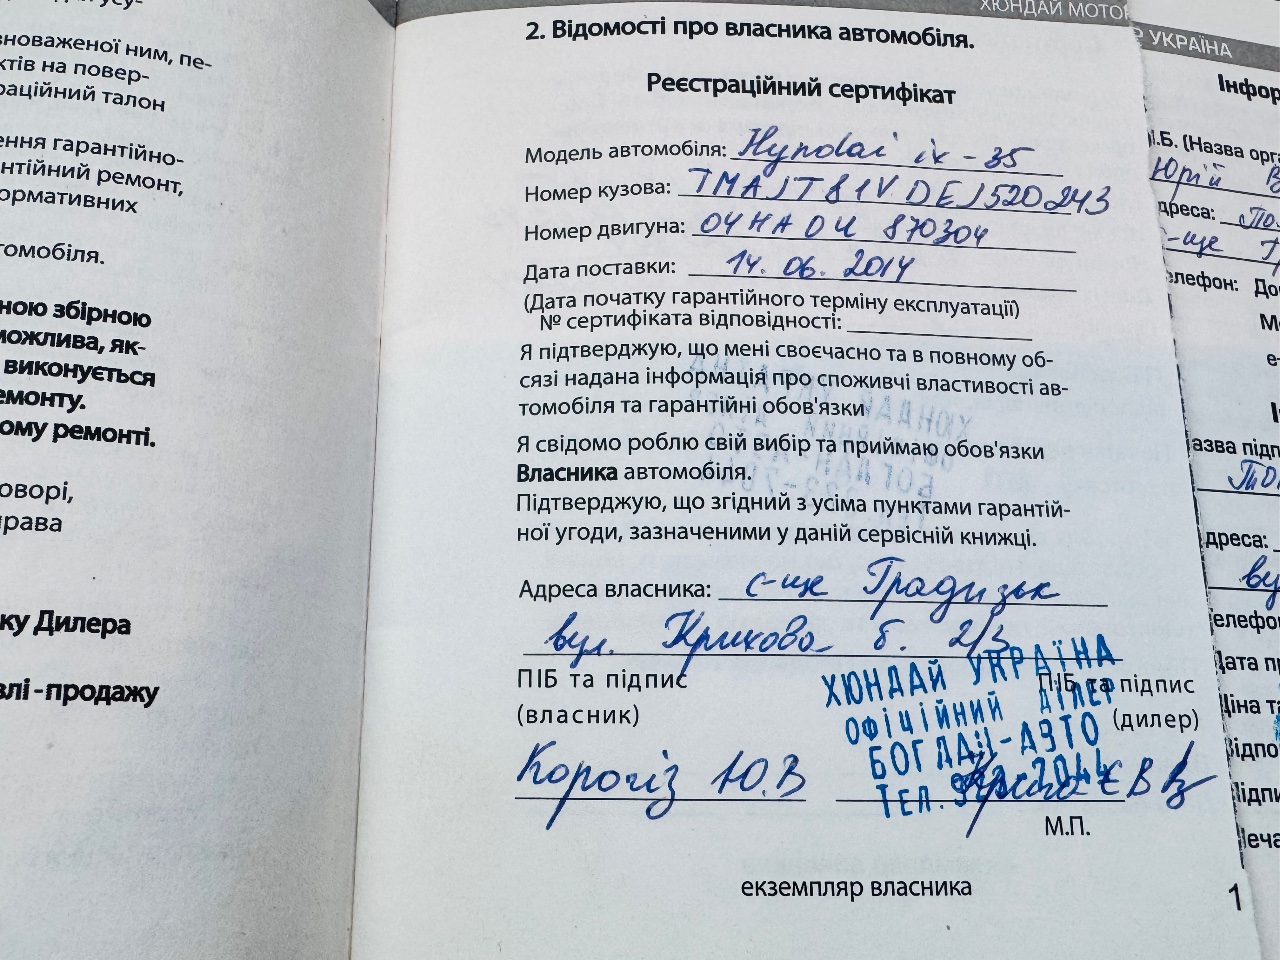 зноваженої ним, пе-
ктів на повер-
раційний талон
ення гарантійно-
нтійний ремонт,
ормативних
томобіля.
ною збірною
можлива, як-
виконується
емонту.
ому ремонті.
оворі,
права
ку Дилера
влі - продажу
ХЮНДАЙ МОТОР
2. Відомості про власника автомобіля.
Реєстраційний сертифікат
Модель автомобіля: Hyndai ix - 35
Номер кузова: TMAJT81VDEJ520243
Номер двигуна: 870304
Дата поставки: 14. 06. 2014
(Дата початку гарантійного терміну експлуатації)
№ сертифіката відповідності:
Я підтверджую, що мені своєчасно та в повному об-
сязі надана інформація про споживчі властивості ав-
томобіля та гарантійні обов'язки
Я свідомо роблю свій вибір та приймаю обов'язки
Власника автомобіля.
Підтверджую, що згідний з усіма пунктами гарантій-
ної угоди, зазначеними у даній сервісній книжці.
Адреса власника: с-ще Градизьк
вул. б. 2/3
ПІБ та підпис
(власник)
ПІБ та підпис
(дилер)
ХЮНДАЙ УКРАЇНА
ОФІЦІЙНИЙ ДІЛЕР
БОГДАН-АВТО
ТЕЛ.
Корогіз Ю.В
М.П.
екземпляр власника
1
Р УКРАЇНА
Інфор
І.Б. (Назва орга
Юрій В
дреса:
с-ще
елефон: До
М
е-
азва підп
дреса:
ву
елефо
Дата пр
Ціна та
Відпо
Підпи
еча